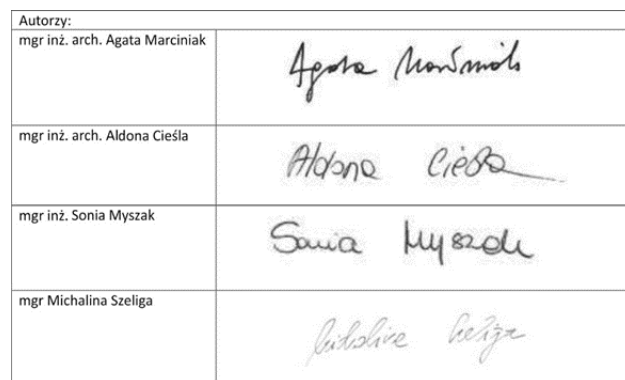 Autorzy:
mgr inż. arch. Agata Marciniak
Agata Marciniak
mgr inż. arch. Aldona Cieśla
Aldona Cieśla
mgr inż. Sonia Myszak
Sonia Myszak
mgr Michalina Szeliga